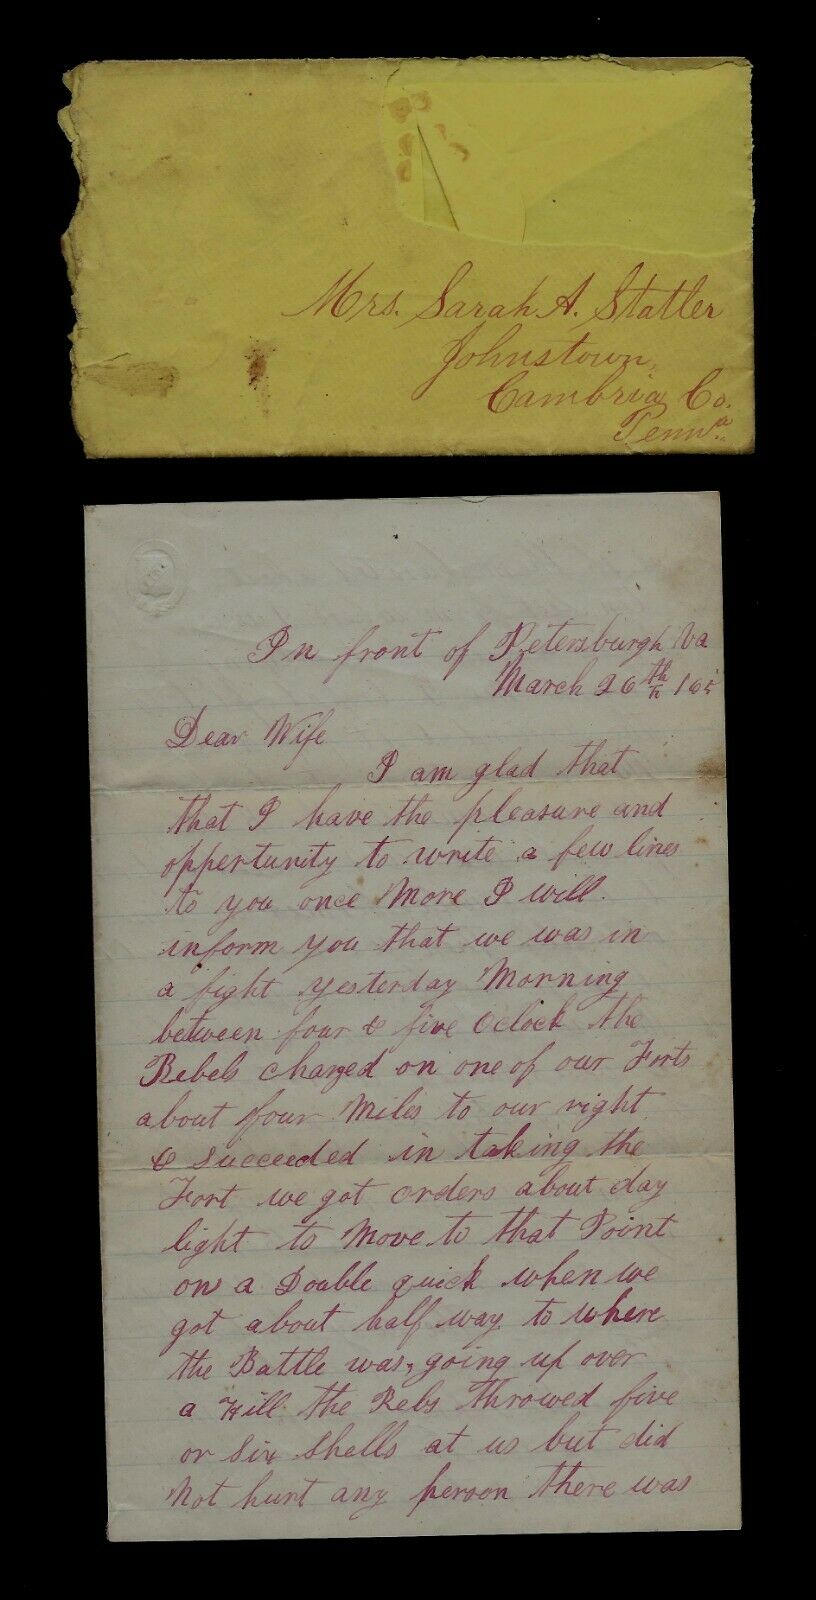 Mrs. Sarah A. Statler
Johnstown,
Cambria Co.
Penna.
In front of Petersburgh Va
March 26th /65
Dear Wife
I am glad that
that I have the pleasure and
oppertunity to write a few lines
to you once More I will
inform you that we was in
a fight yesterday Morning
between four & five Oclock the
Rebels charged on one of our Forts
about four Miles to our right
& Succeeded in taking the
Fort we got orders about day
light to Move to that Point
on a Double quick when we
got about half way to where
the Battle was, going up over
a Hill the Rebs throwed five
or Six Shells at us but did
Not hurt any person there was